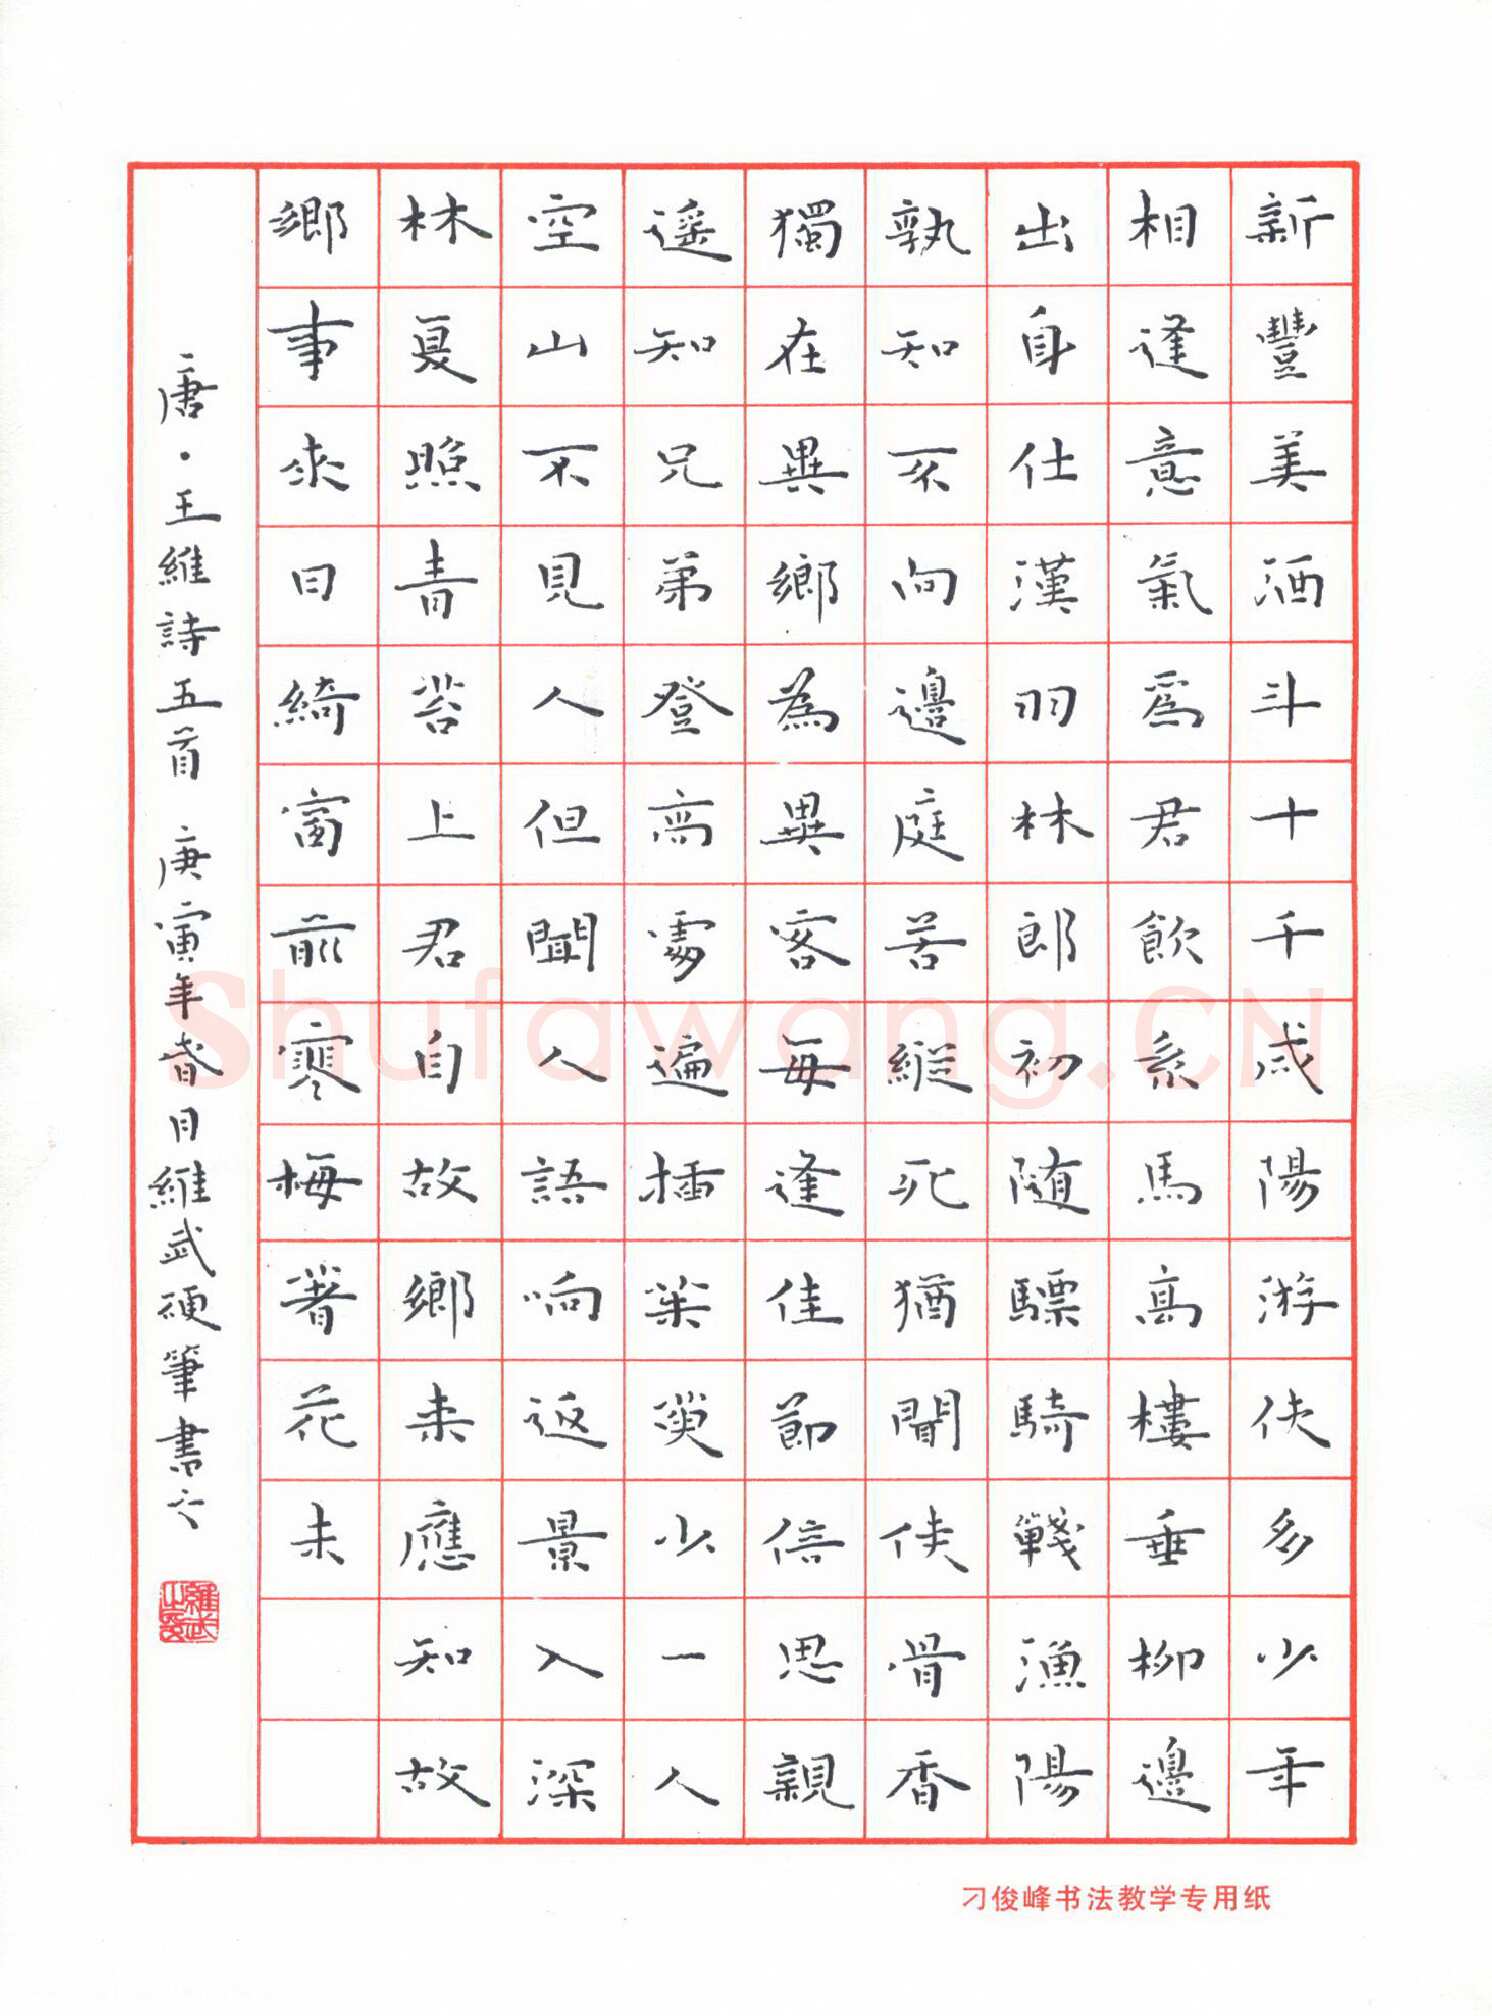 新豐美酒斗十千咸陽游俠多少年
相逢意氣爲君飲系馬高樓垂柳邊
出身仕漢羽林郎初随驃騎戰漁陽
孰知不向邊庭苦縱死猶聞俠骨香
獨在異鄉為異客每逢佳節倍思親
遥知兄弟登高處遍插茱萸少一人
空山不見人但聞人語响返景入深
林夏照青苔上君自故鄉来應知故
鄉事來日綺窗前寒梅著花未
唐·王維詩五首 庚寅年春月維武硬筆書之
刁俊峰书法教学专用纸
Shufawang.CN